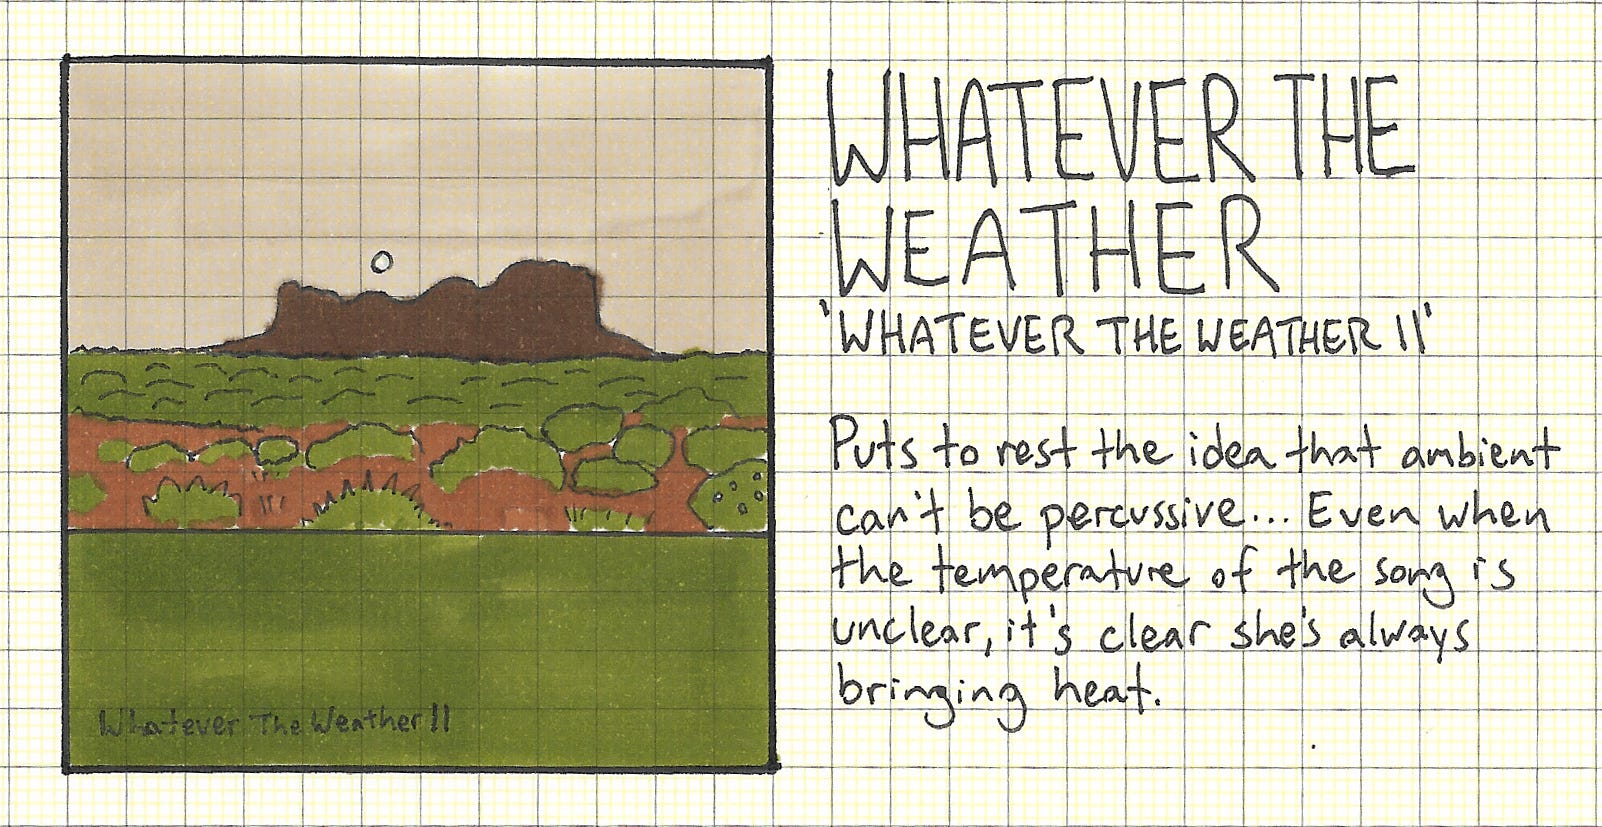 WHATEVER THE
WEATHER
'WHATEVER THE WEATHER II'
Puts to rest the idea that ambient
can't be percussive... Even when
the temperature of the song is
unclear, it's clear she's always
bringing heat.
Whatever The Weather II